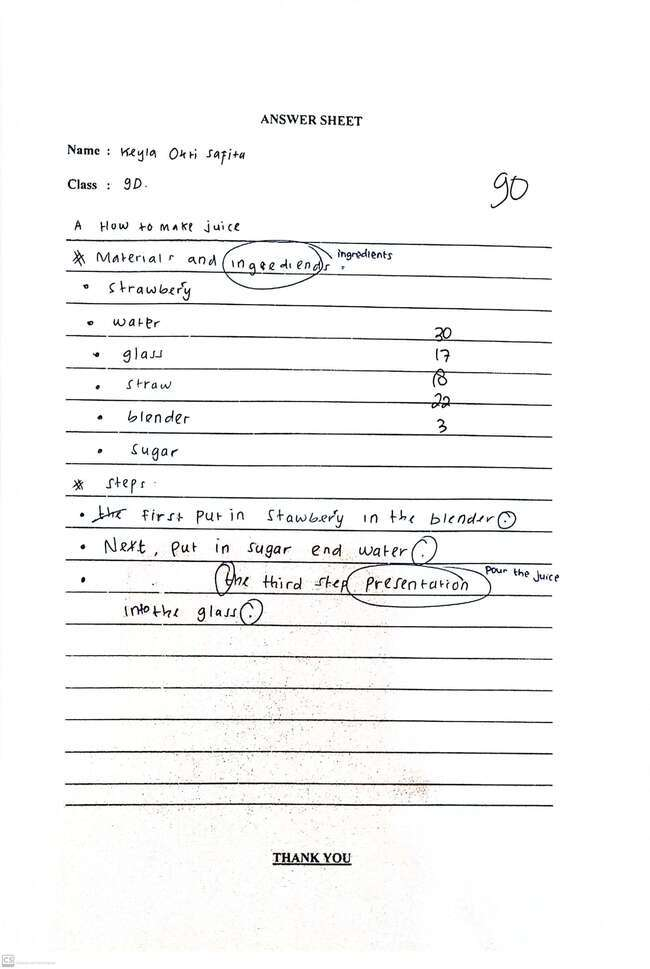 ANSWER SHEET
Name : Keyla Okti Safita
Class : 9D.
90
A How to make juice
* Materials and ingrediends. ingredients
• strawbery
• water
30
• glass
17
• straw
18
22
• blender
3
• sugar
* steps.
• the first put in stawbery in the blender.
• Next, put in sugar end water.
• the third step presentation pour the juice
into the glass.
THANK YOU
CS